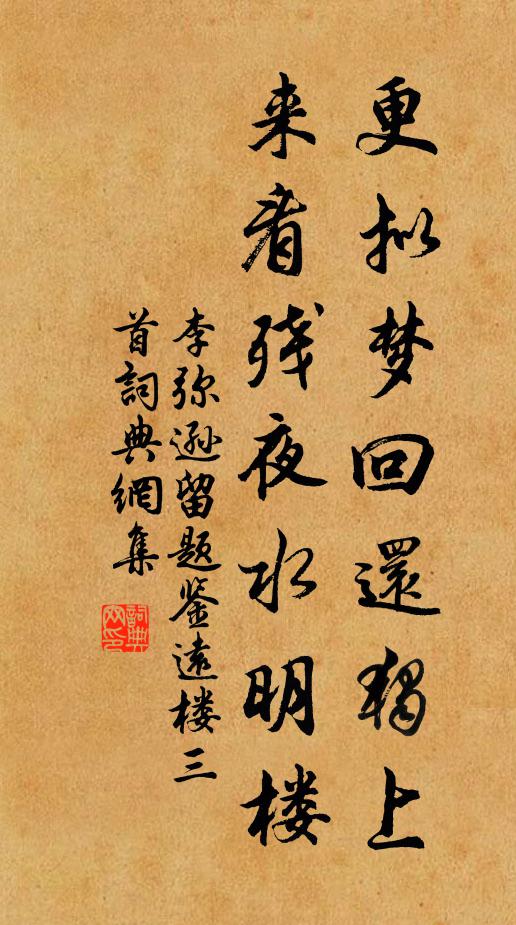 更拟梦回還独上
来看残夜水明楼
李弥遜留题鉴遠楼三
首詞典網集
詞典
网印